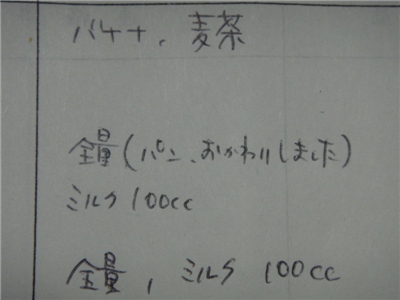 バナナ、麦茶
全量(パン、おかわりしました)
ミルク100cc
全量、ミルク 100cc